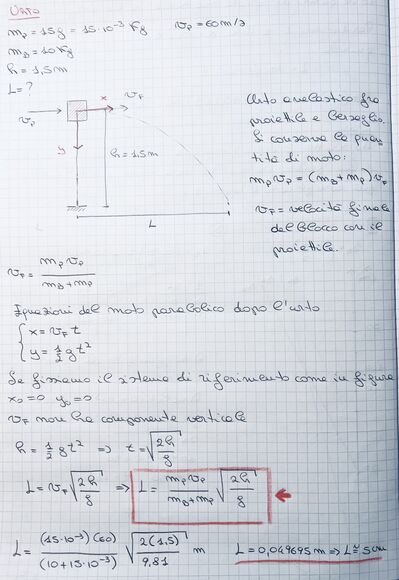 URTO
m_P = 15g = 15·10⁻³ Kg   v_P = 60 m/s
m_B = 10 Kg
h = 1,5 m
L = ?
x   v_F
v_P
y   h = 1,5 m
L
Urto anelastico fra
proiettile e bersaglio.
Si conserva la quan
tità di moto:
m_P v_P = (m_B + m_P) v_F
v_F = velocità finale
del blocco con il
proiettile.
v_F = m_P v_P / (m_B + m_P)
Equazioni del moto parabolico dopo l'urto
{ x = v_F t
{ y = ½ g t²
Se fissiamo il sistema di riferimento come in figura
x₀ = 0   y₀ = 0
v_F non ha componente verticale
h = ½ g t² => t = √(2h/g)
L = v_F √(2h/g) => L = m_P v_P / (m_B + m_P) √(2h/g)
L = (15·10⁻³)(60) / (10 + 15·10⁻³) √(2(1,5)/9,81) m   L = 0,049695 m => L ≅ 5 cm